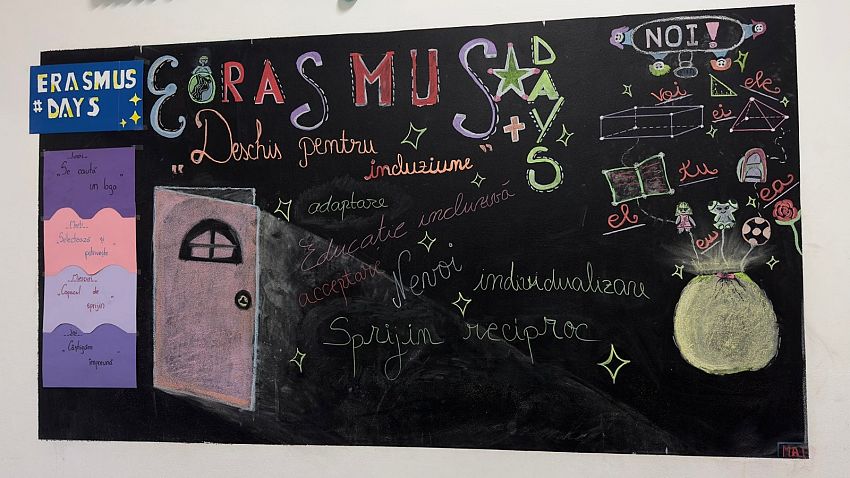 ERASMUS
#DAYS
ERASMUS+
DAYS
"Deschis pentru
incluziune"
Luni
"Se caută
un logo"
Marți
"Selectează și
potrivește"
Miercuri
"Copacul de
sprijin"
Joi
"Câștigăm
împreună"
adaptare
Educatie incluzivă
acceptare
Nevoi
individualizare
Sprijin reciproc
NOI!
voi
ele
ei
tu
el
ea
eu
MA